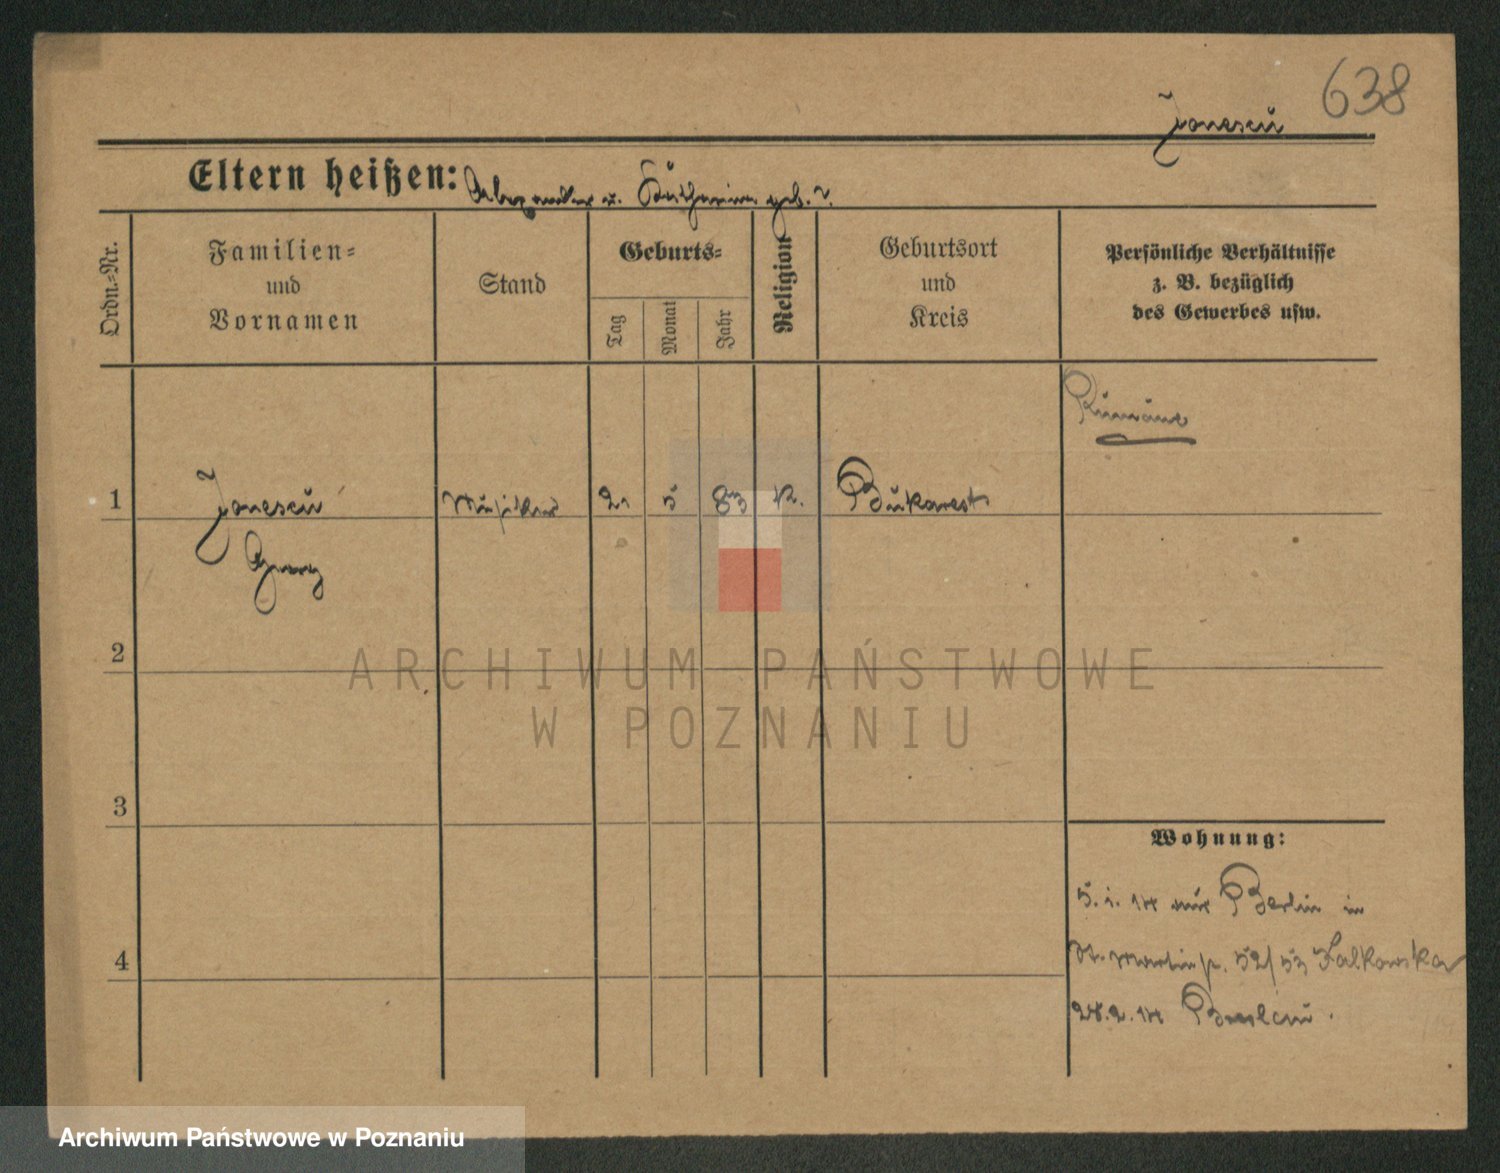 638
Jonescu
Eltern heißen: Alexander u. Katharina geb. ?
Ordn.-Nr.
Familien-
und
Vornamen
Stand
Geburts-
Tag
Monat
Jahr
Religion
Geburtsort
und
Kreis
Persönliche Verhältnisse
z. B. bezüglich
des Gewerbes usw.
Rumäne
1 Jonescu Musiker 21 5 83 K. Bukarest
Georg
2
ARCHIWUM PAŃSTWOWE
W POZNANIU
3
Wohnung:
5. 1. 14 aus Berlin in
4
St. Martinstr. 52/53 Falkowska
28. 2. 14 Breslau.
Archiwum Państwowe w Poznaniu